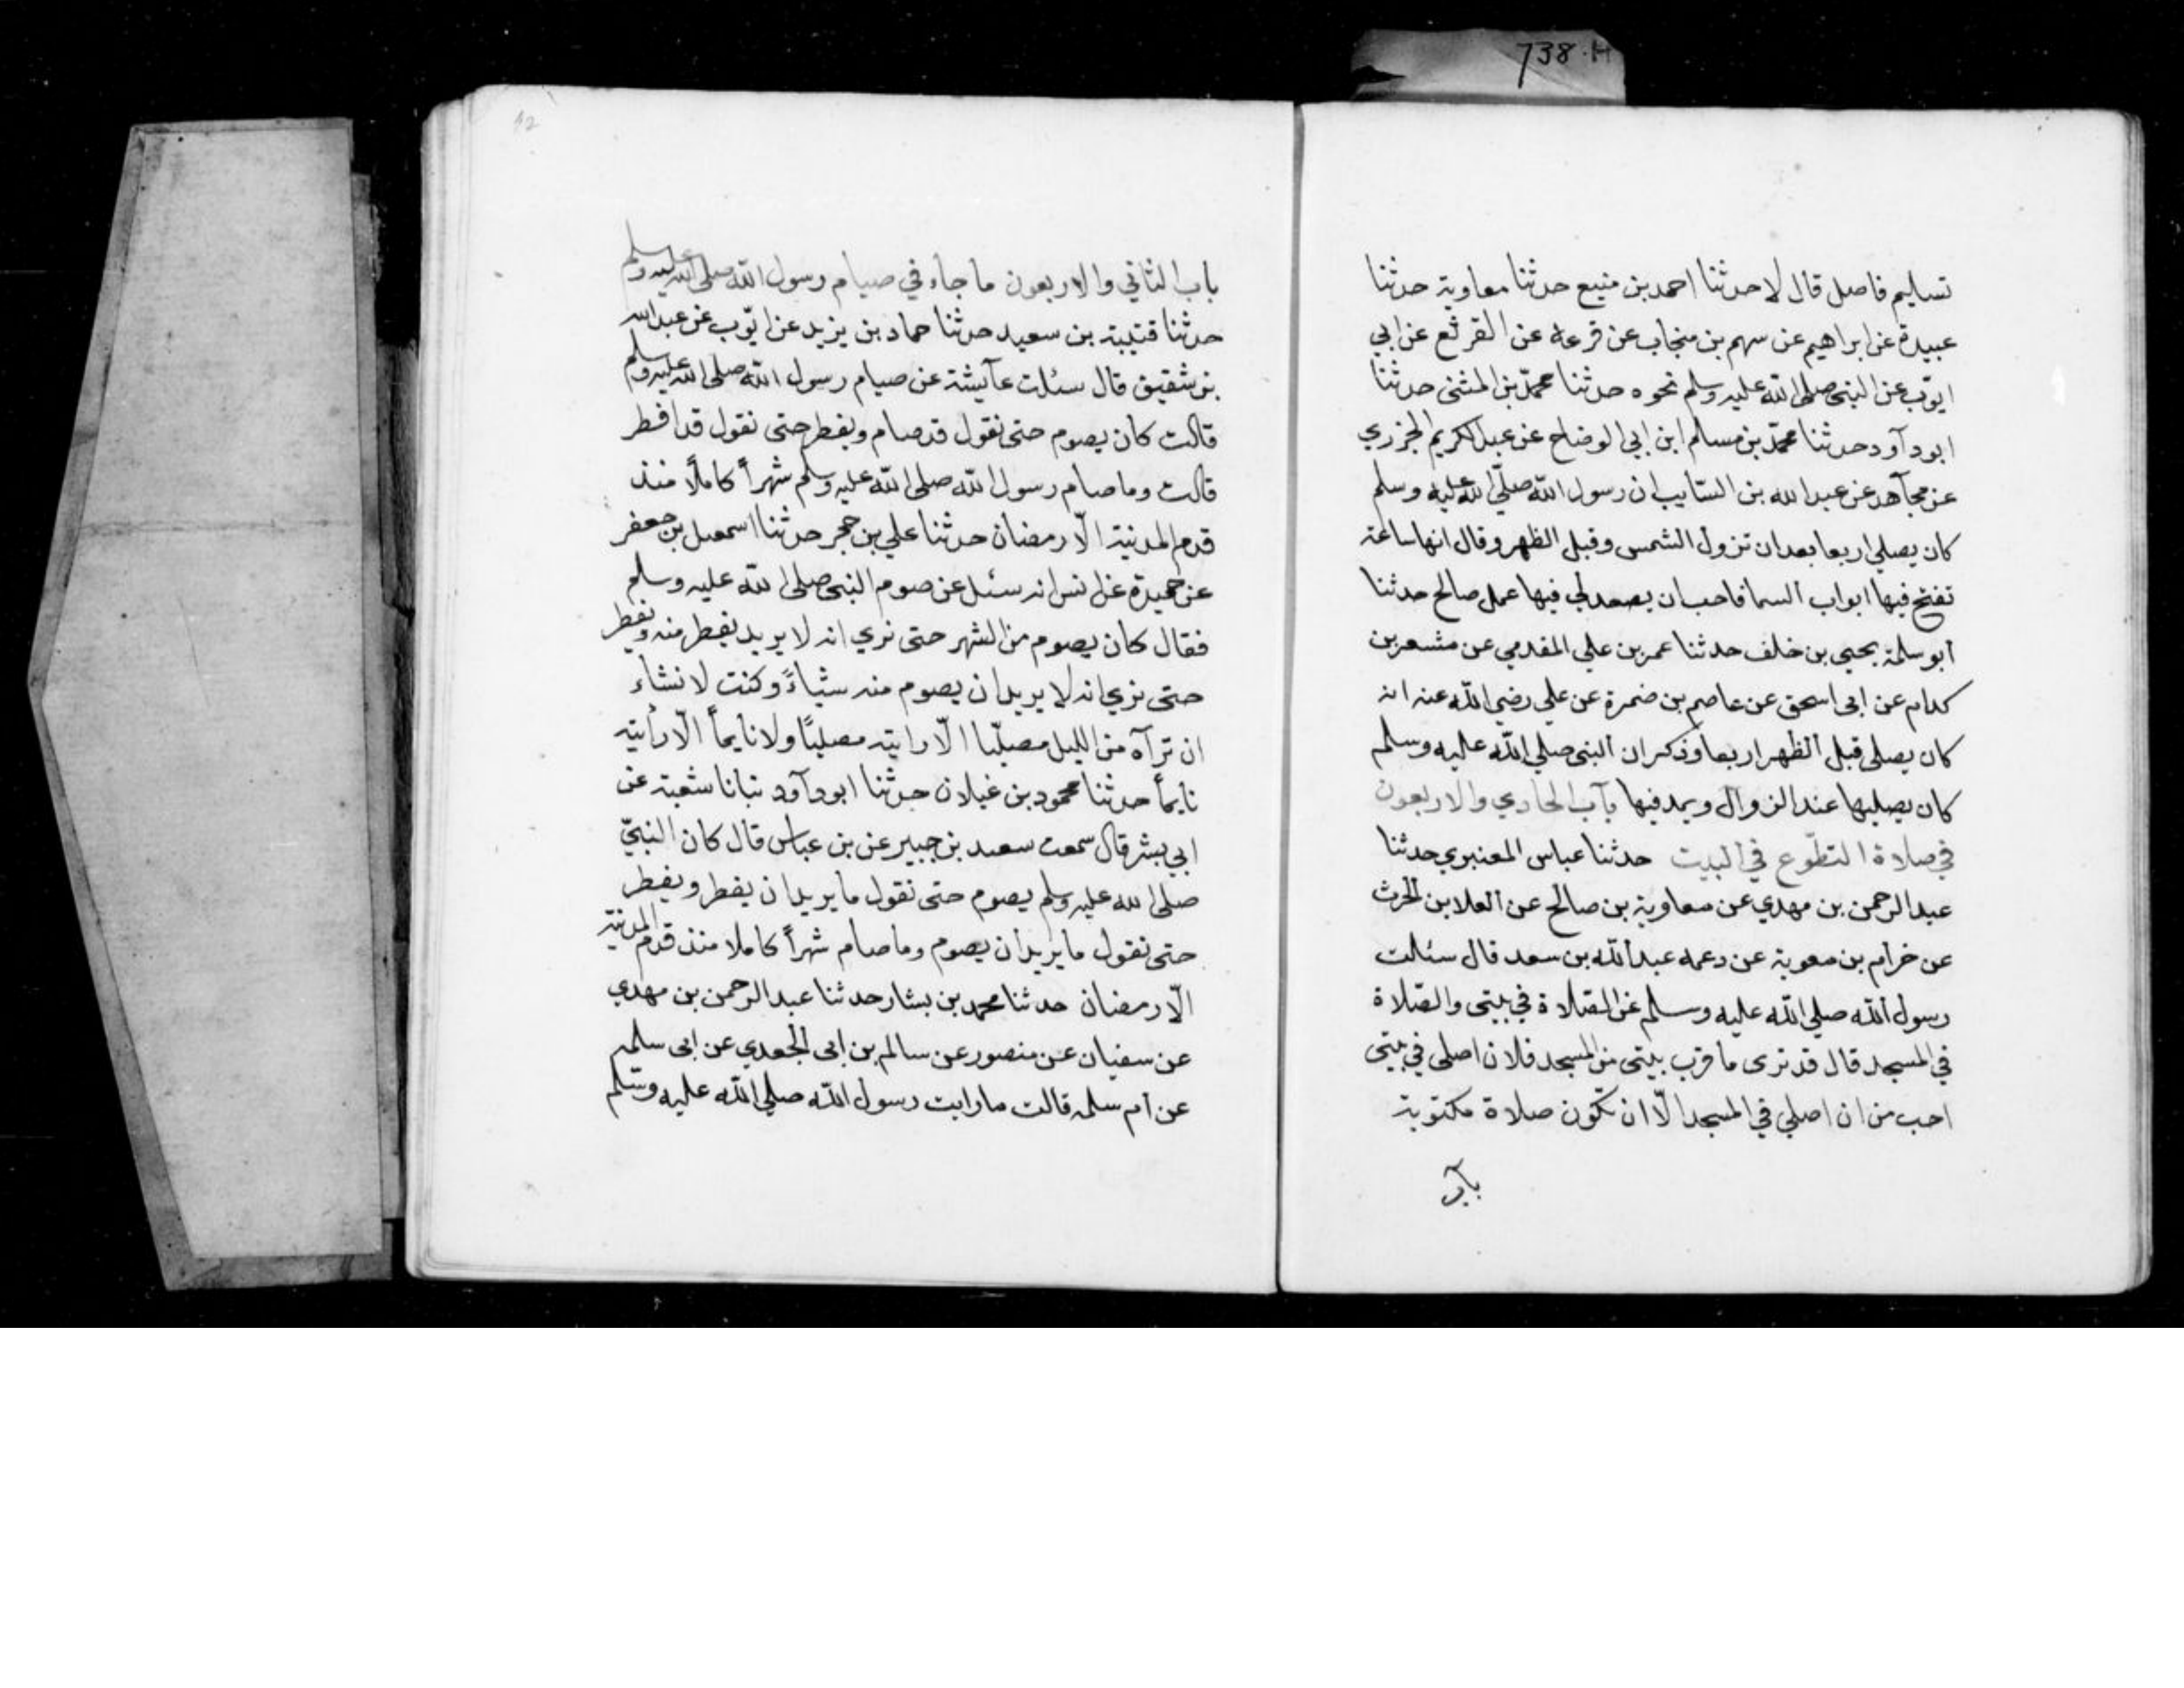 738.H
تسليم فاصل قال لا حدثنا احمد بن منيع حدثنا معاوية حدثنا
عبيدة عن ابراهيم عن سهم بن منجاب عن قرعه عن القرثع عن ابي
ايوّب عن النبى صلى الله عليه وسلم نحوه حدثنا محمّد بن المثنى حدثنا
ابو دآود حدثنا محمّد بن مسلم ابن ابي الوضاح عن عبد الكريم الجزري
عن مجآهد عن عبد الله بن السّايب ان رسول الله صلّى الله عليه وسلم
كان يصلي اربعا بعد ان تزول الشمس وقبل الظهر وقال انها ساعة
تفتح فيها ابواب السما فاحب ان يصعد لي فيها عمل صالح حدثنا
ابو سلمة يحيى بن خلف حدثنا عمر بن علي المقدمي عن مشعر بن
كدام عن ابى اسحق عن عاصم بن ضمرة عن علي رضي الله عنه انه
كان يصلى قبل الظهر اربعا وذكر ان النبى صلي الله عليه وسلم
كان يصليها عند الزوال ويمد فيها باب الحادي والاربعون
في صلاة التطوّع في البيت حدثنا عباس المعنبري حدثنا
عبد الرحمن بن مهدي عن معاوية بن صالح عن العلا بن الحرث
عن خرام بن معوية عن دعمه عبد الله بن سعد قال سئلت
رسول الله صلي الله عليه وسلم عن الصّلاة في بيتى والصّلاة
في المسجد قال قد ترى ما قرب بيتى من المسجد فلان اصلى في بيتى
احب من ان اصلي في المسجد الّا ان تكون صلاة مكتوبة
باب
42
باب الثاني والاربعون ما جاء في صيام رسول الله صلى الله عليه وسلم
حدثنا قتيبة بن سعيد حدثنا حماد بن يزيد عن ايّوب عن عبد الله
بن شقيق قال سئلت عآيشة عن صيام رسول الله صلى الله عليه وسلم
قالت كان يصوم حتى نقول قد صام ويفطر حتى نقول قد افطر
قالت وما صام رسول الله صلى الله عليه وسلم شهراً كاملًا منذ
قدم المدنية الّا رمضان حدثنا علي بن حجر حدثنا اسمعيل بن جعفر
عن حميدة عن انس انه سئل عن صوم النبى صلى الله عليه وسلم
فقال كان يصوم من الشهر حتى نري انه لا يريد يفطر منه ويفطر
حتى نري انه لا يريد ان يصوم منه شياءً وكنت لا نشاء
ان ترآه من الليل مصلّيا الّا رايته مصليًا ولا نايماً الّا رأيته
نايماً حدثنا محمود بن غيلان حدثنا ابو دآود نبانا شعبة عن
ابي بشر قال سمعت سعيد بن جبير عن بن عباس قال كان النبيّ
صلى الله عليه وسلم يصوم حتى نقول ما يريد ان يفطر ويفطر
حتى نقول ما يريد ان يصوم وما صام شهراً كاملا منذ قدم المدنية
الّا رمضان حدثنا محمد بن بشار حدثنا عبد الرحمن بن مهدي
عن سفيان عن منصور عن سالم بن ابى الجعدي عن ابى سلمه
عن ام سلمه قالت ما رايت رسول الله صلي الله عليه وسّلم